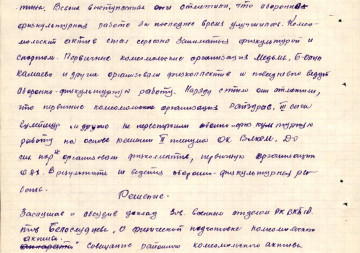 Всеми выступавшими было отмечено, что оборонно-
физкультурная работа за последнее время улучшилась. Комсо-
мольский актив стал серьезно заниматься физкультурой и
спортом. Первичные комсомольские организации Медсан,
и другие организовали физколлектив и повседневно ведут
оборонно-физкультурную работу. Наряду с этим они отметили,
что первичные комсомольские организации Райздрав, III
и другие не перестроили оборонно-физкультурную
работу на основе решения II пленума ОК ВЛКСМ. До
сих пор организован физколлектив, первичную организации
В результате не ведется оборонно-физкультурная ра-
бота.
Решение:
Заслушав и обсудив доклад Зав. военным отделом РК ВКП(б)
тов Белослудцева, "О физической подготовке комсомольского
актива" совещание районного комсомольского актива